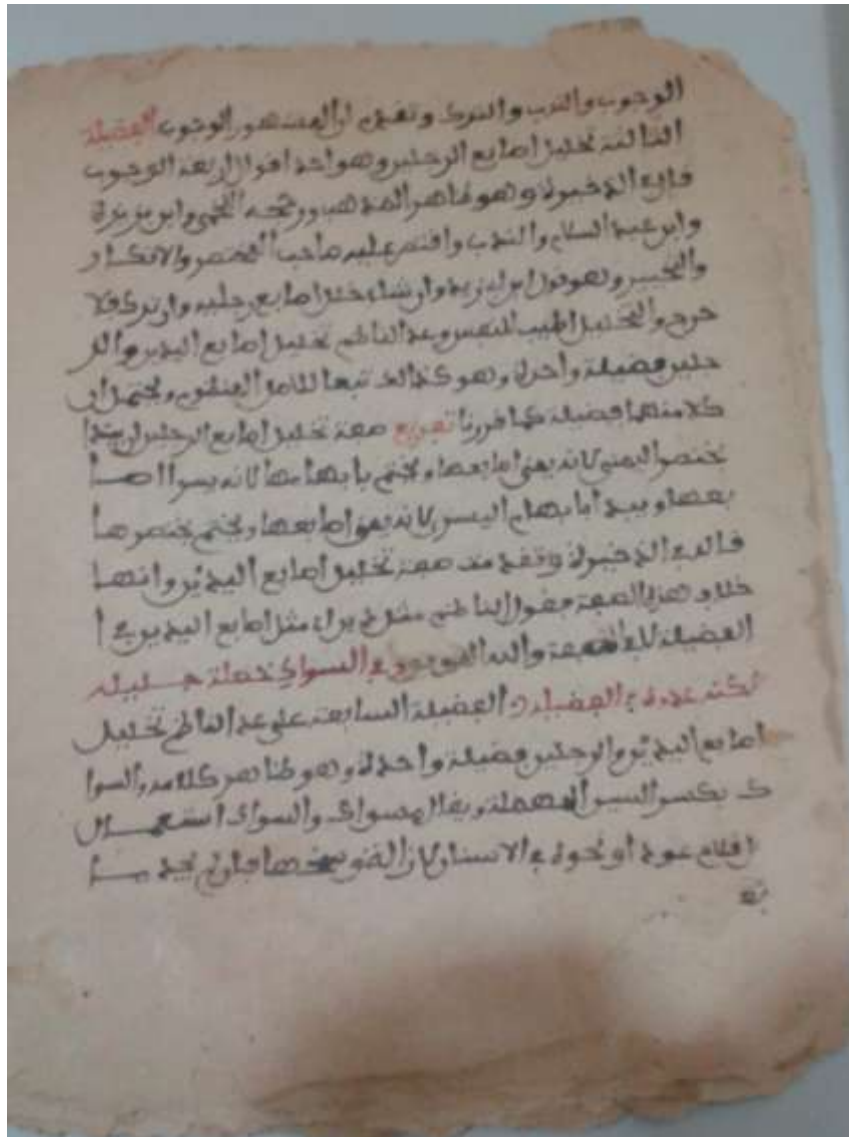 الوجوب والندب والترك وتقدم ان المشهور الوجوب الفضيلة
الثالثة تخليل اصابع الرجلين وهو احد اقوال اربعة الوجوب
قال في الذخيرة وهو ظاهر المذهب ورجحه اللخمي وابن بزيزة
وابن عبد السلام والندب واقتصر عليه صاحب المختصر والانكار
والتخيير وهو قول ابن زيد وان شاء خلل اصابع رجليه وان ترك فلا
حرج والتخليل اطيب للنفس وعد الناظم تخليل اصابع اليدين والر
جلين فضيلة واحدة وهو كذالك تبعا للاصل المنظوم ويحتمل ان
كلا منهما فضيلة كما قررنا تفريع صفة تخليل اصابع الرجلين ان يبتدا
بخنصر اليمنى لانه يمنى اصابعها ويختم بابهامها لانه يسرا اصا
بعها ويبدا بابهام اليسرى لانه يمنى اصابعها ويختم بخنصرها
قال في الذخيرة وقد تقدم صفة تخليل اصابع اليدين وانها
خلاف هذه الصفة فقول الناظم مثل يريد مثل اصابع اليدين في ا
لفضيلة لا في الصفة والله الموفق وفي السواك خصلة جليلة
لكنه عدوه في الفضيلة الفضيلة السابعة على عد الناظم تخليل
اصابع اليدين والرجلين فضيلة واحدة وهو ظاهر كلامه والسوا
ك بكسر السين المهملة ويقال مسواك والسواك استعمال
عود او نحوه في الاسنان لازالة وسخها فان لم يجد